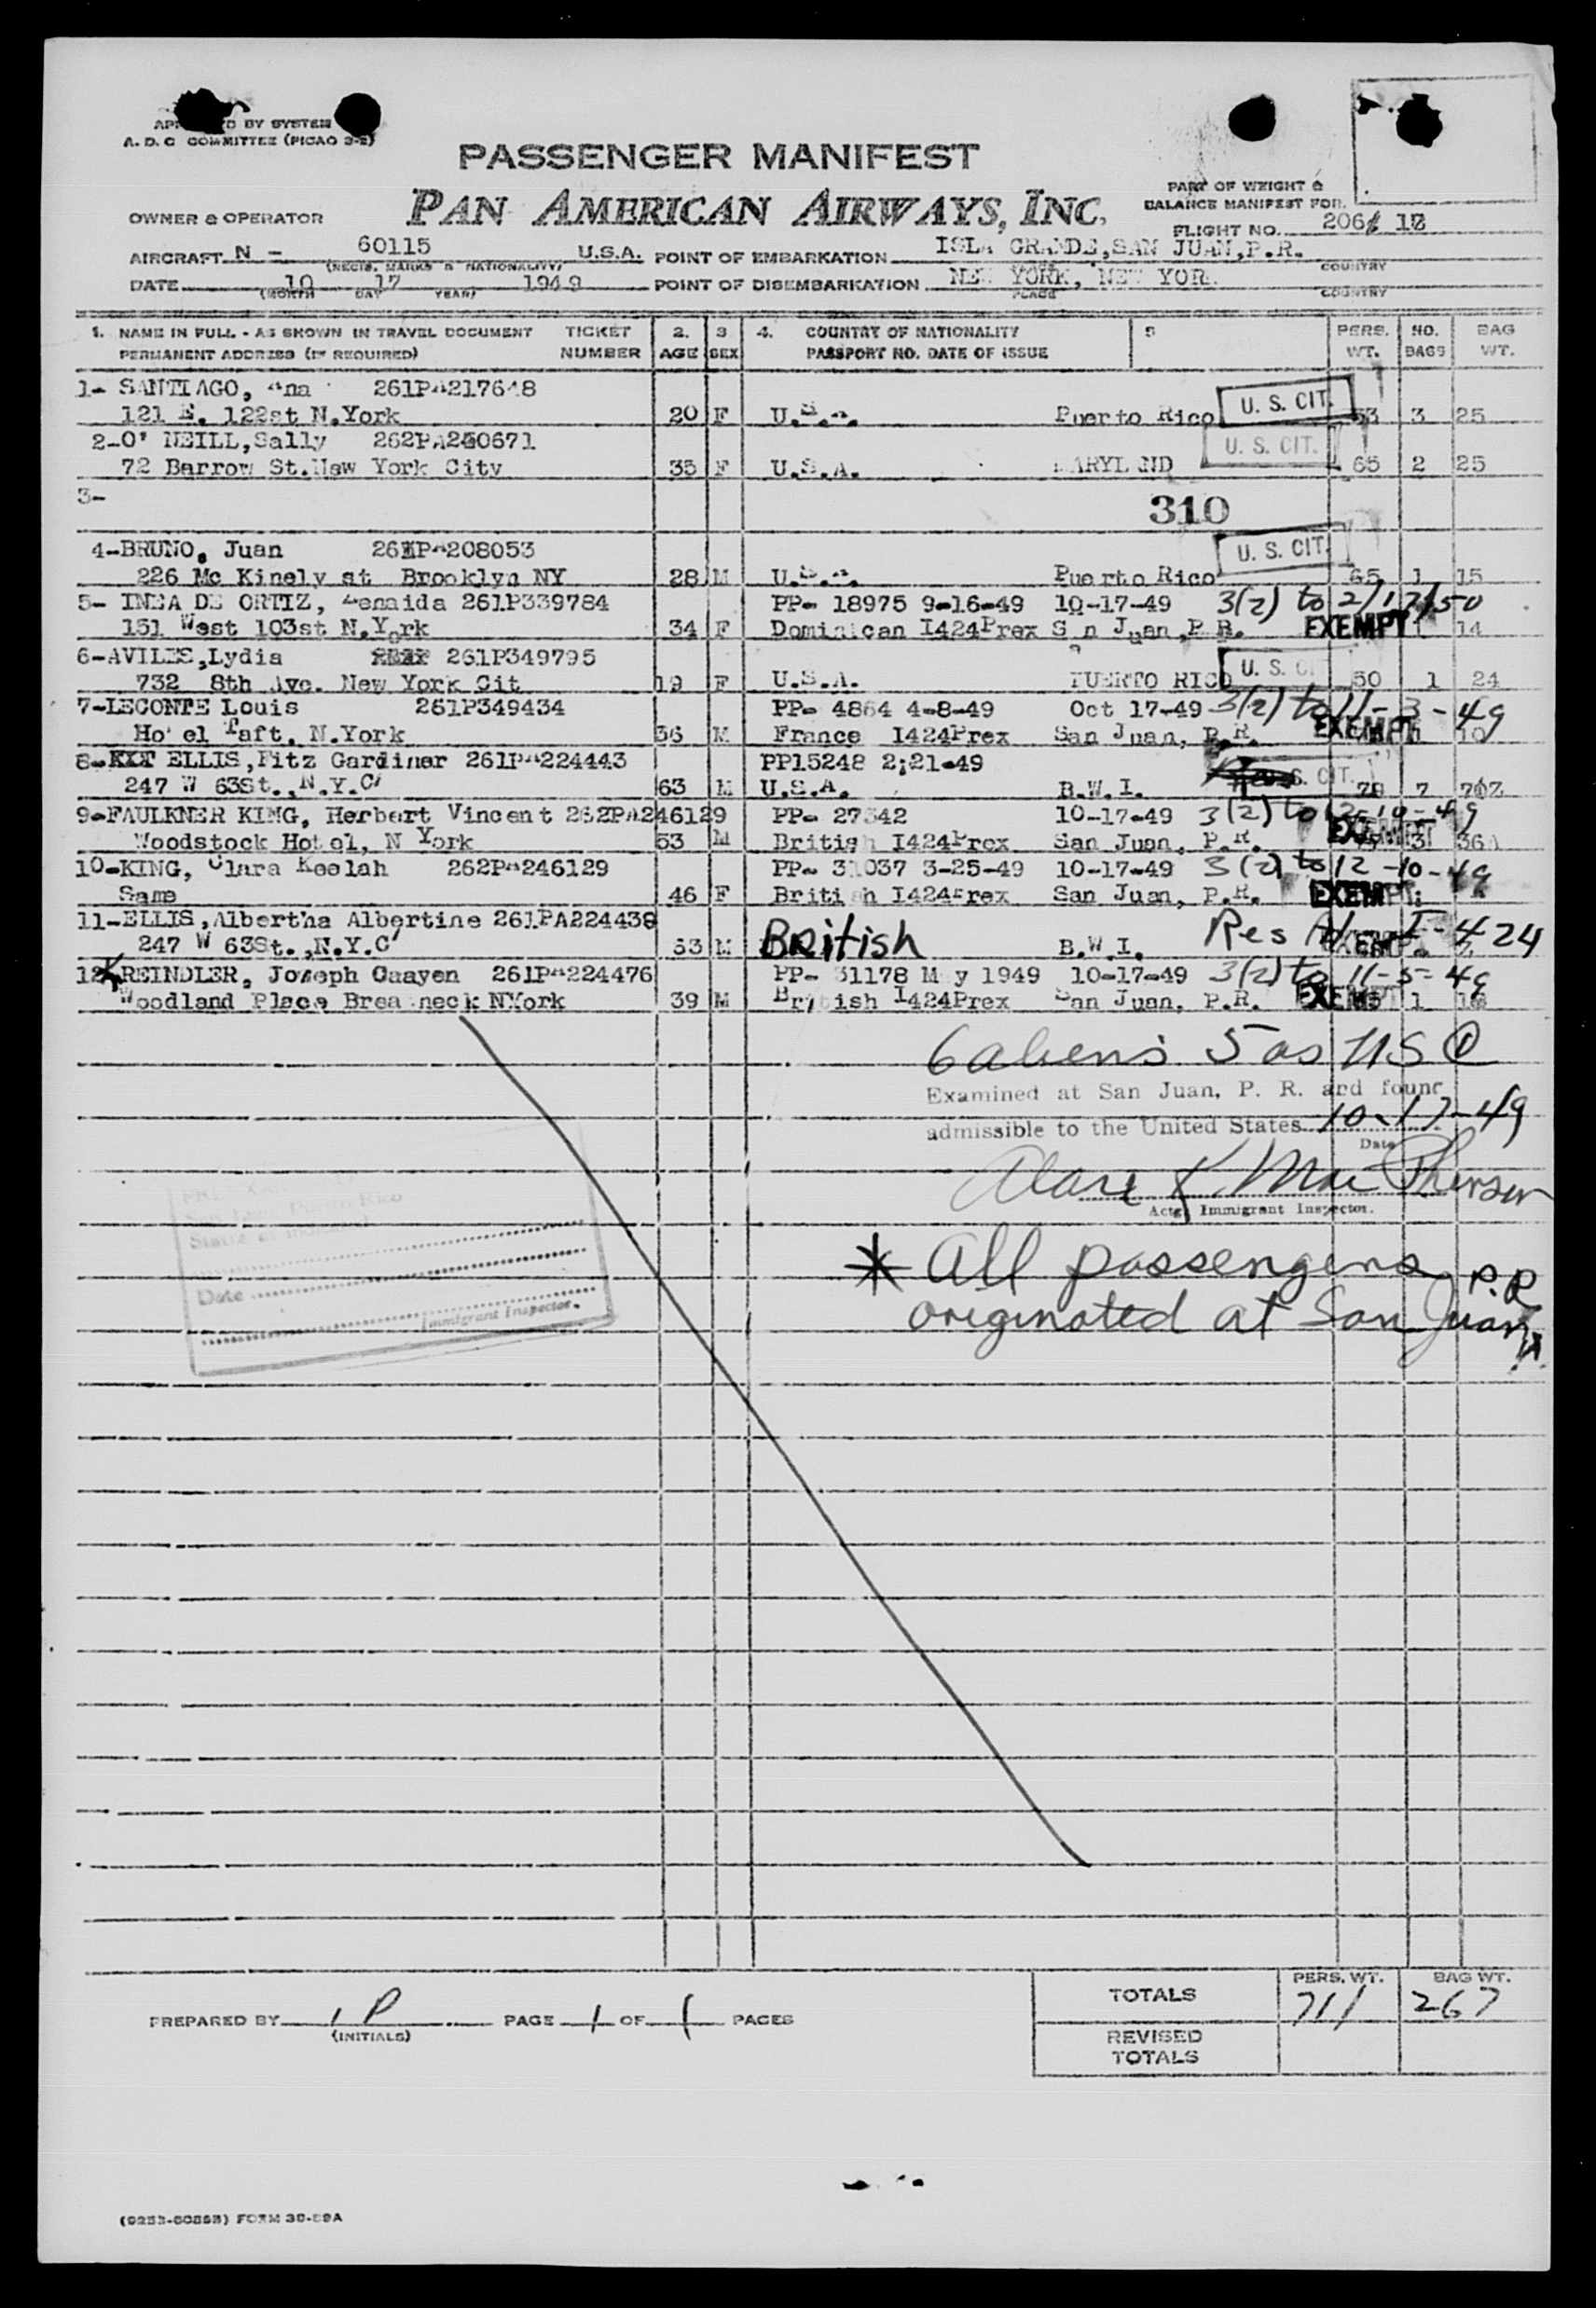 BY SYSTEM
A. D. C COMMITTEE (PICAO 3-2)
PASSENGER MANIFEST
PAN AMERICAN AIRWAYS, INC.
PART OF WEIGHT &
BALANCE MANIFEST FOR.
OWNER & OPERATOR
FLIGHT NO. 206
AIRCRAFT N - 60115 U.S.A. POINT OF EMBARKATION ISLA GRANDE, SAN JUAN, P.R.
(REGIS. MARKS & NATIONALITY) COUNTRY
DATE 10 17 1949 POINT OF DISEMBARKATION NEW YORK, NEW YOR
(MONTH DAY YEAR) PLACE COUNTRY
1. NAME IN FULL - AS SHOWN IN TRAVEL DOCUMENT TICKET 2. 3 4. COUNTRY OF NATIONALITY 5 PERS. NO. BAG
PERMANENT ADDRESS (IF REQUIRED) NUMBER AGE SEX PASSPORT NO. DATE OF ISSUE WT. BAGS WT.
1- SANTIAGO, Ana 261PA217648
121 E. 122st N.York 20 F U.S.A. Puerto Rico U. S. CIT. 53 3 25
2-O' NEILL,Sally
72 Barrow St.New York City 35 F U.S.A. MARYLAND U. S. CIT. 65 2 25
3-
310
4-BRUNO, Juan 208053
226 Mc Kinely st Brooklyn NY 28 M U.S.A. Puerto Rico U. S. CIT. 65 1 15
5- DE ORTIZ, Zenaida 261P339784 PP- 18975 9-16-49 10-17-49 3(2) to 2/17/50
151 West 103st N.York 34 F Dominican I424Prex San Juan,P.R. EXEMPT 1 14
6-AVILES,Lydia 261P349795
732 8th Ave. New York Cit 19 F U.S.A. PUERTO RICO U. S. CI 50 1 24
7-LECONTE Louis 261P349434 PP- 4864 4-8-49 Oct 17-49 3(2) to 11-3-49
Hotel Taft, N.York 36 M France I424Prex San Juan, P.R. EXEMPT 1 10
8- ELLIS,Fitz Gardiner 261PA224443 PP15248 2;21-49
247 W 63St.,N.Y.C 63 M U.S.A. B.W.I. S. CIT. 78 7
9-FAULKNER KING, Herbert Vincent 262PA246129 PP- 27342 10-17-49 3(2) to 12-10-49
Woodstock Hotel, N York 53 M British I424Prex San Juan, P.R. EXEMPT 3 36
10-KING, Clara Keelah 262PA246129 PP- 31037 3-25-49 10-17-49 3(2) to 12-10-49
Same 46 F British I424Prex San Juan, P.R. EXEMPT
11-ELLIS,Albertha Albertine 261PA224438
247 W 63St.,N.Y.C 53 M British B.W.I. Res I-424
12 REINDLER, Joseph Caayen 261PA224476 PP- 31178 May 1949 10-17-49 3(2) to 11-5-49
Woodland Place Brea neck NYork 39 M British I424Prex San Juan, P.R. EXEMPT 1
6 aliens 5 as USC
Examined at San Juan, P. R. and found
admissible to the United States 10-17-49
Date
Actg. Immigrant Inspector.
Date
Immigrant Inspector.
* All passengers
originated at San Juan, P.R.
PREPARED BY (INITIALS) PAGE 1 OF 1 PAGES
PERS. WT. BAG WT.
TOTALS 711 267
REVISED
TOTALS